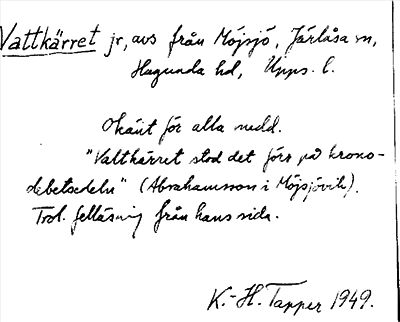 Vattkärret jr, avs från Möjsjö, Järlåsa sn,
Hagunda hd, Upps. l.
Okänt för alla medd.
"Vattkärret stod det förr på krono-
debetsedeln" (Abrahamsson i Möjsjövik).
Trol. felläsning från hans sida.
K.-H. Tapper 1949.